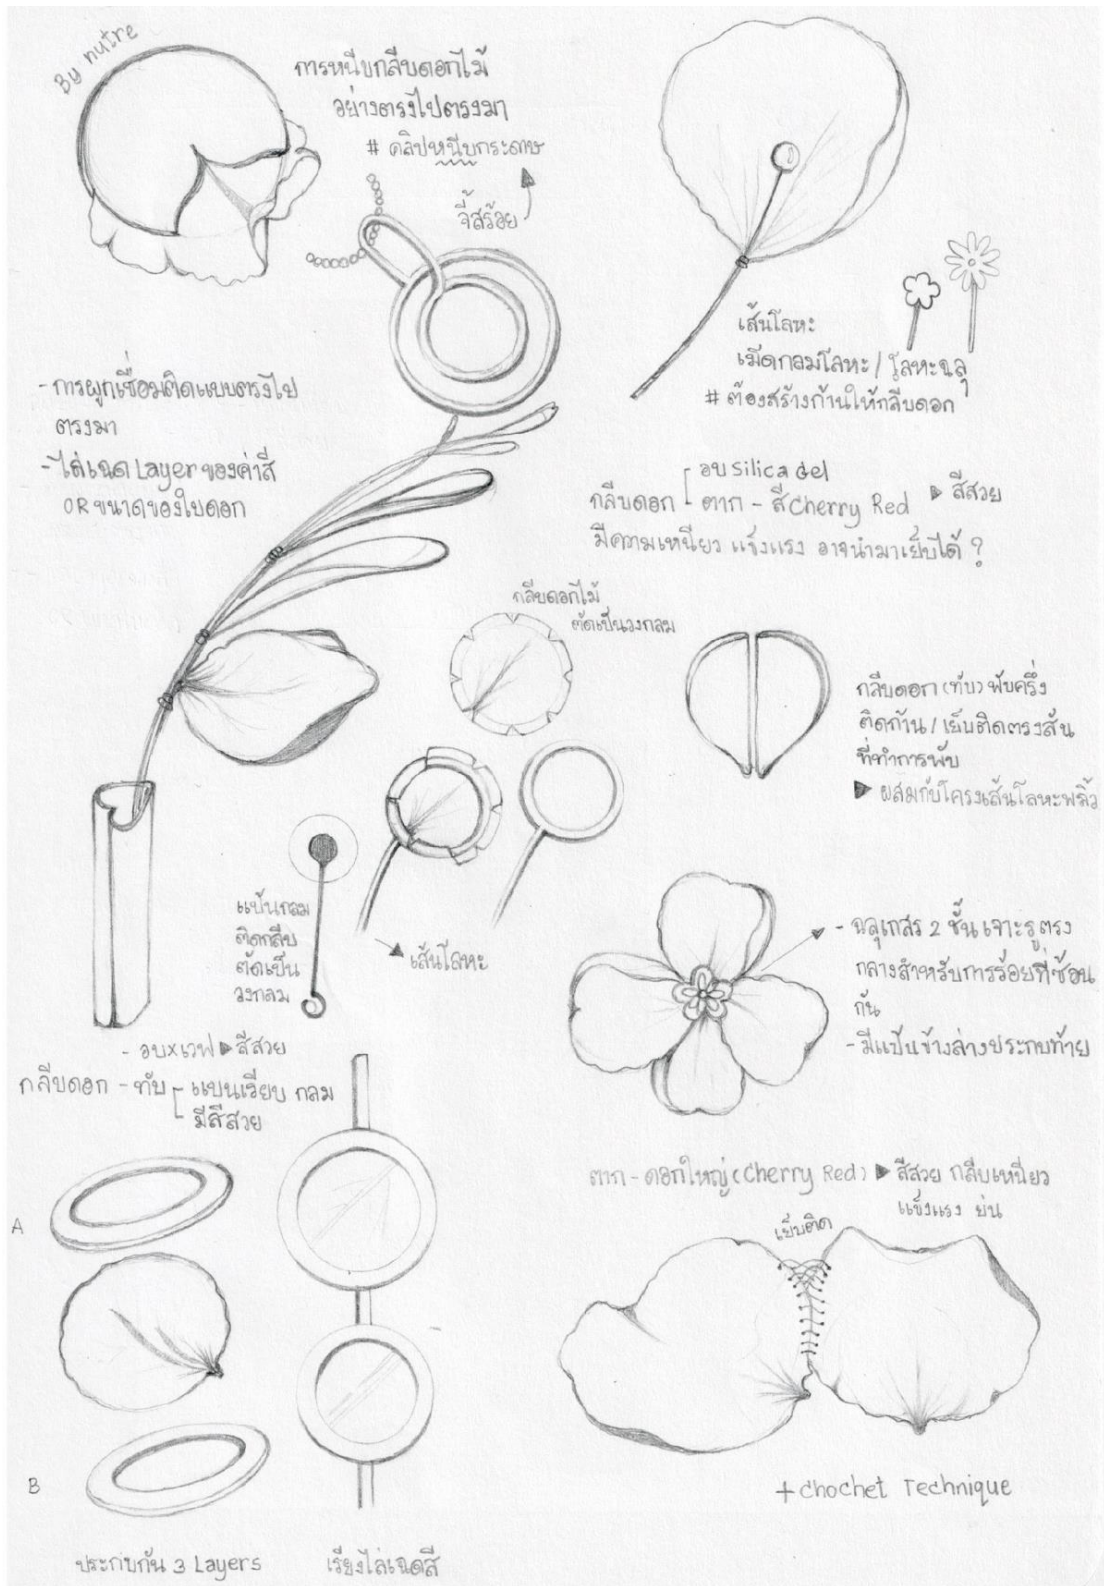 By nutre
การหนีบกลีบดอกไม้
อย่างตรงไปตรงมา
# คลิปหนีบกระดาษ
จี้สร้อย
เส้นโลหะ
เม็ดกลมโลหะ / โลหะฉลุ
# ต้องสร้างก้านให้กลีบดอก
- การผูกเชื่อมติดแบบตรงไป
ตรงมา
- ไล่เฉด Layer ของค่าสี
OR ขนาดของใบดอก
อบ Silica Gel
กลีบดอก ตาก - สี Cherry Red ▶ สีสวย
มีความเหนียว แข็งแรง อาจนำมาเย็บได้ ?
กลีบดอกไม้
ตัดเป็นวงกลม
กลีบดอก (ทับ) พับครึ่ง
ติดก้าน / เย็บติดตรงสัน
ที่ทำการพับ
▶ ผสมกับโครงเส้นโลหะพลิ้ว
แป้นกลม
ติดกลีบ
ตัดเป็น
วงกลม
เส้นโลหะ
- ฉลุเกสร 2 ชั้น เจาะรูตรง
กลางสำหรับการร้อยที่ซ้อน
กัน
- มีแป้นข้างล่างประกบท้าย
- อบ x เวฟ ▶ สีสวย
กลีบดอก - ทับ แบนเรียบ กลม
มีสีสวย
ตาก - ดอกใหญ่ (Cherry Red) ▶ สีสวย กลีบเหนียว
แข็งแรง ย่น
เย็บติด
A
B
+ Chochet Technique
ประกบกัน 3 Layers
เรียงไล่เฉดสี